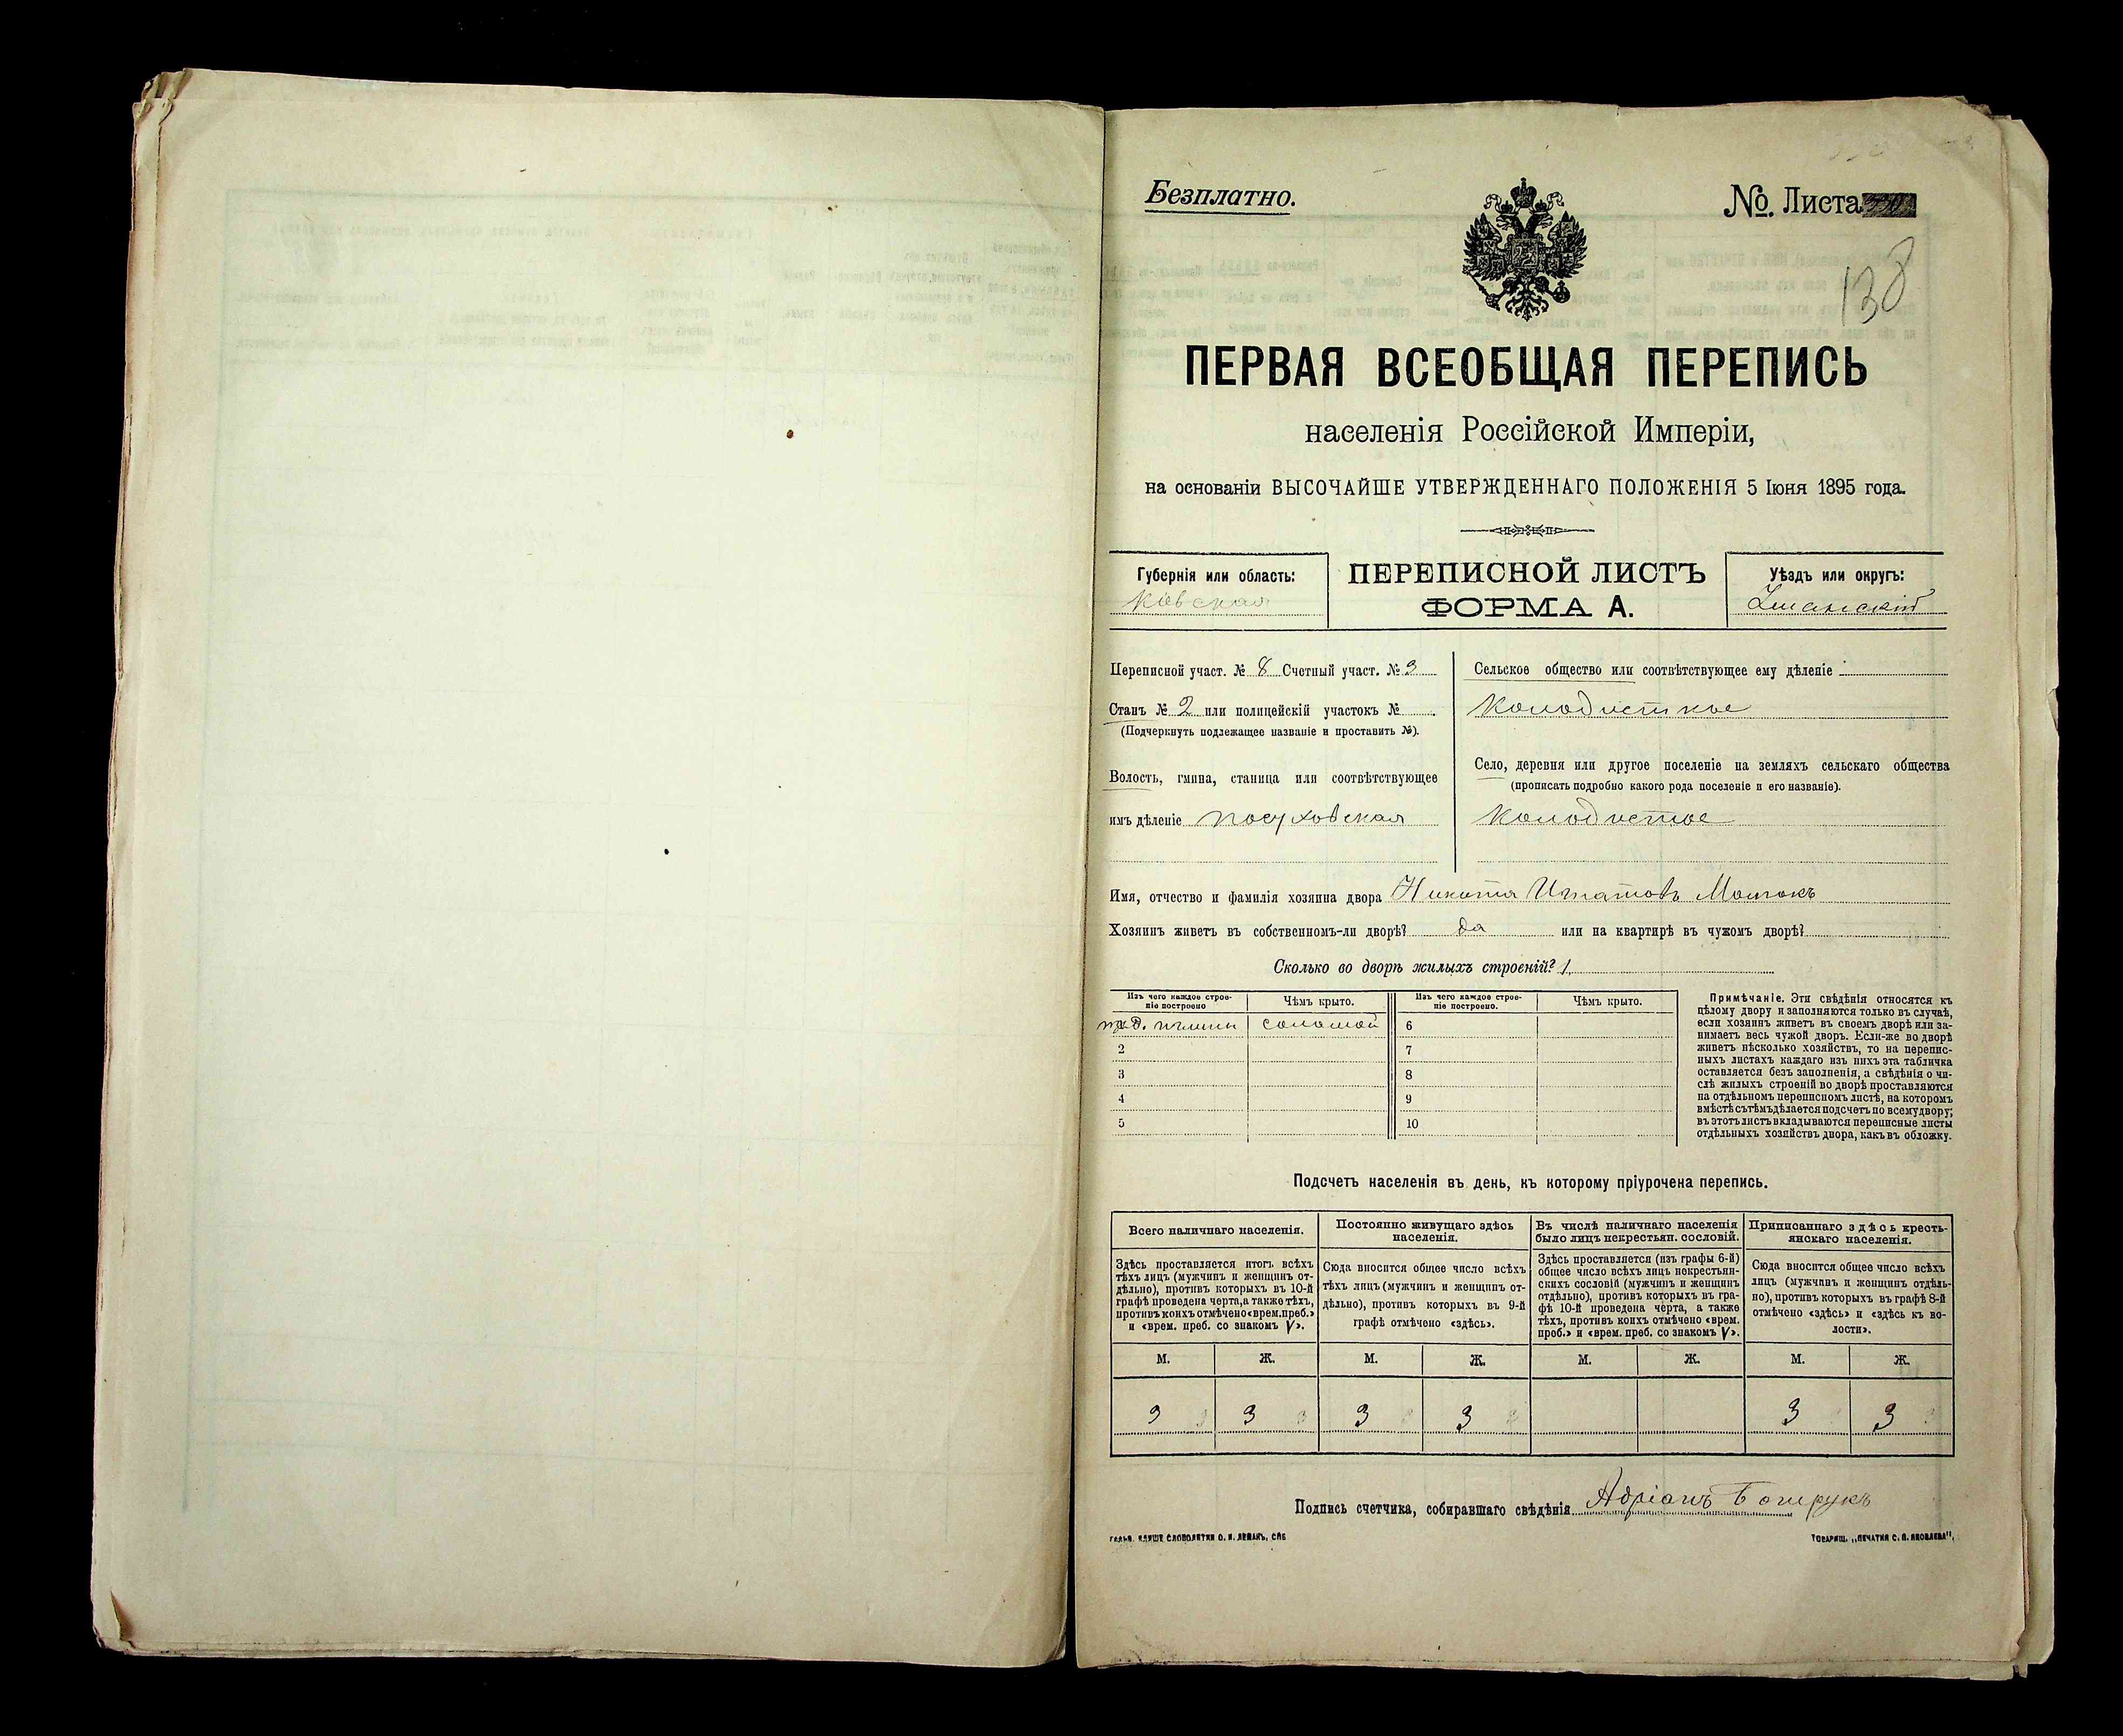 Безплатно.
№. Листа
138
ПЕРВАЯ ВСЕОБЩАЯ ПЕРЕПИСЬ
населенія Россійской Имперіи,
на основаніи ВЫСОЧАЙШЕ УТВЕРЖДЕННАГО ПОЛОЖЕНІЯ 5 Іюня 1895 года.
Губернія или область:
ПЕРЕПИСНОЙ ЛИСТЪ
ФОРМА А.
Уѣздъ или округъ:
Уманскій
Переписной участ. № 8 Счетный участ. № 3
Станъ № 2 или полицейскій участокъ №
(Подчеркнуть подлежащее названіе и проставить №).
Волость, гмина, станица или соотвѣтствующее
имъ дѣленіе посуховская
Сельское общество или соотвѣтствующее ему дѣленіе
Колодисткое
Село, деревня или другое поселеніе на земляхъ сельскаго общества
(прописать подробно какого рода поселеніе и его названіе).
Колодистое
Имя, отчество и фамилія хозяина двора Никита Игнатовъ
Хозяинъ живетъ въ собственномъ-ли дворѣ? да или на квартирѣ въ чужомъ дворѣ?
Сколько во дворѣ жилыхъ строеній? 1
Изъ чего каждое строе-
ніе построено
Чѣмъ крыто.
Изъ чего каждое строе-
ніе построено.
Чѣмъ крыто.
глины соломой
6
2
7
3
8
4
9
5
10
Примѣчаніе. Эти свѣдѣнія относятся къ
цѣлому двору и заполняются только въ случаѣ,
если хозяинъ живетъ въ своемъ дворѣ или за-
нимаетъ весь чужой дворъ. Если-же во дворѣ
живетъ нѣсколько хозяйствъ, то на перепис-
ныхъ листахъ каждаго изъ нихъ эта табличка
оставляется безъ заполненія, а свѣдѣнія о чи-
слѣ жилыхъ строеній во дворѣ проставляются
на отдѣльномъ переписномъ листѣ, на которомъ
вмѣстѣ съ тѣмъ дѣлается подсчетъ по всему двору;
въ этотъ листъ вкладываются переписные листы
отдѣльныхъ хозяйствъ двора, какъ въ обложку.
Подсчетъ населенія въ день, къ которому пріурочена перепись.
Всего наличнаго населенія.
Здѣсь проставляется итогъ всѣхъ
тѣхъ лицъ (мужчинъ и женщинъ от-
дѣльно), противъ которыхъ въ 10-й
графѣ проведена черта, а также тѣхъ,
противъ коихъ отмѣчено «врем. преб.»
и «врем. преб. со знакомъ V».
Постоянно живущаго здѣсь
населенія.
Сюда вносится общее число всѣхъ
тѣхъ лицъ (мужчинъ и женщинъ от-
дѣльно), противъ которыхъ въ 9-й
графѣ отмѣчено «здѣсь».
Въ числѣ наличнаго населенія
было лицъ некрестьян. сословій.
Здѣсь проставляется (изъ графы 6-й)
общее число всѣхъ лицъ некрестьян-
скихъ сословій (мужчинъ и женщинъ
отдѣльно), противъ которыхъ въ гра-
фѣ 10-й проведена черта, а также
тѣхъ, противъ коихъ отмѣчено «врем.
преб.» и «врем. преб. со знакомъ V».
Приписаннаго здѣсь кресть-
янскаго населенія.
Сюда вносится общее число всѣхъ
лицъ (мужчинъ и женщинъ отдѣль-
но), противъ которыхъ въ графѣ 8-й
отмѣчено «здѣсь» и «здѣсь къ во-
лости».
М. Ж. М. Ж. М. Ж. М. Ж.
3 3 3 3 3 3
Подпись счетчика, собиравшаго свѣдѣнія Адріанъ
СЛОВОЛИТНИ О. И. ЛЕМАНЪ, СПБ
ТОВАРИЩ. „ПЕЧАТНЯ С. П. ЯКОВЛЕВА".